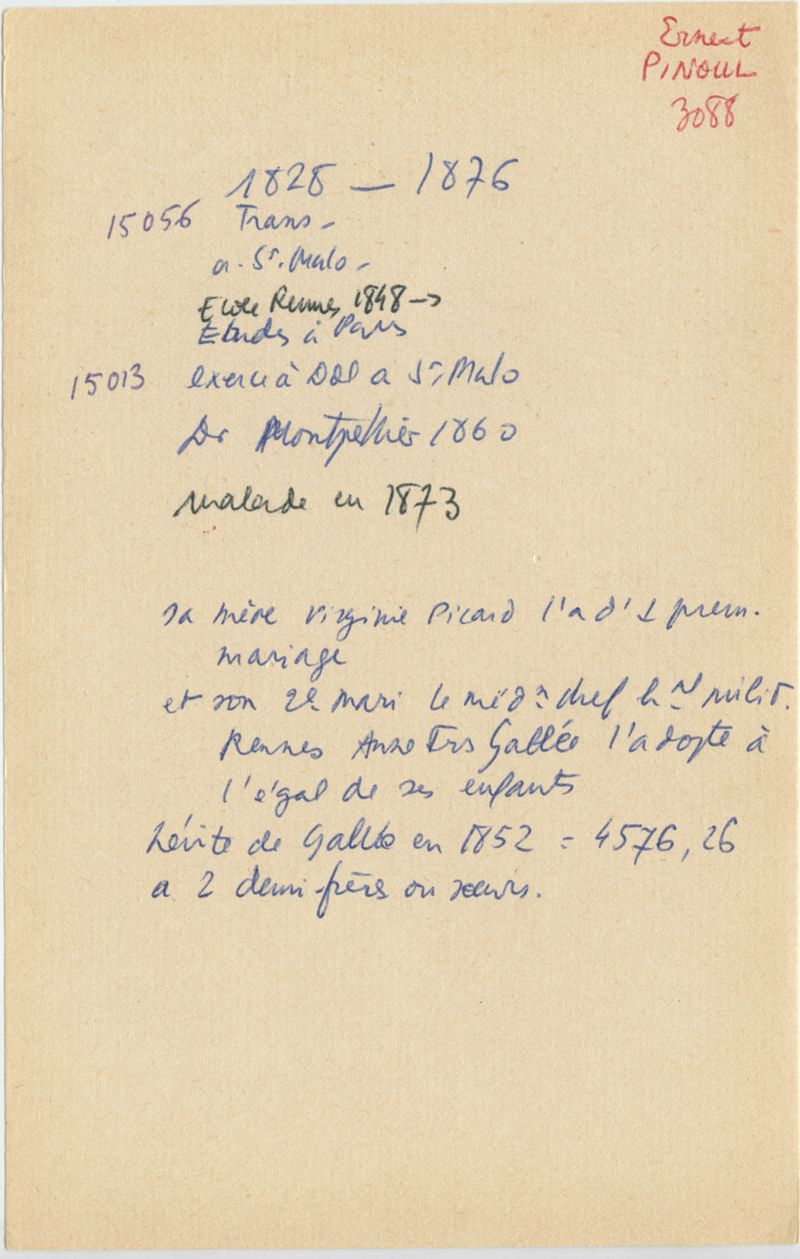 Ernest
PINOUL
3088
1828 – 1876
15056 Trans -
a. St. Malo -
Ecole Rennes 1848 →
Etudes à Paris
15013 exerce à DOL a St. Malo
Dr Montpellier 1860
malade en 1873
sa mère Virginie Picard l'a d'1 prem.
mariage
et son 2e mari le méd^n chef h^al milit.
Rennes Anne Frs Gallée l'adopte à
l'égal de ses enfants
hérite de Gallée en 1852 = 4576,26
a 2 demi-frères ou sœurs.